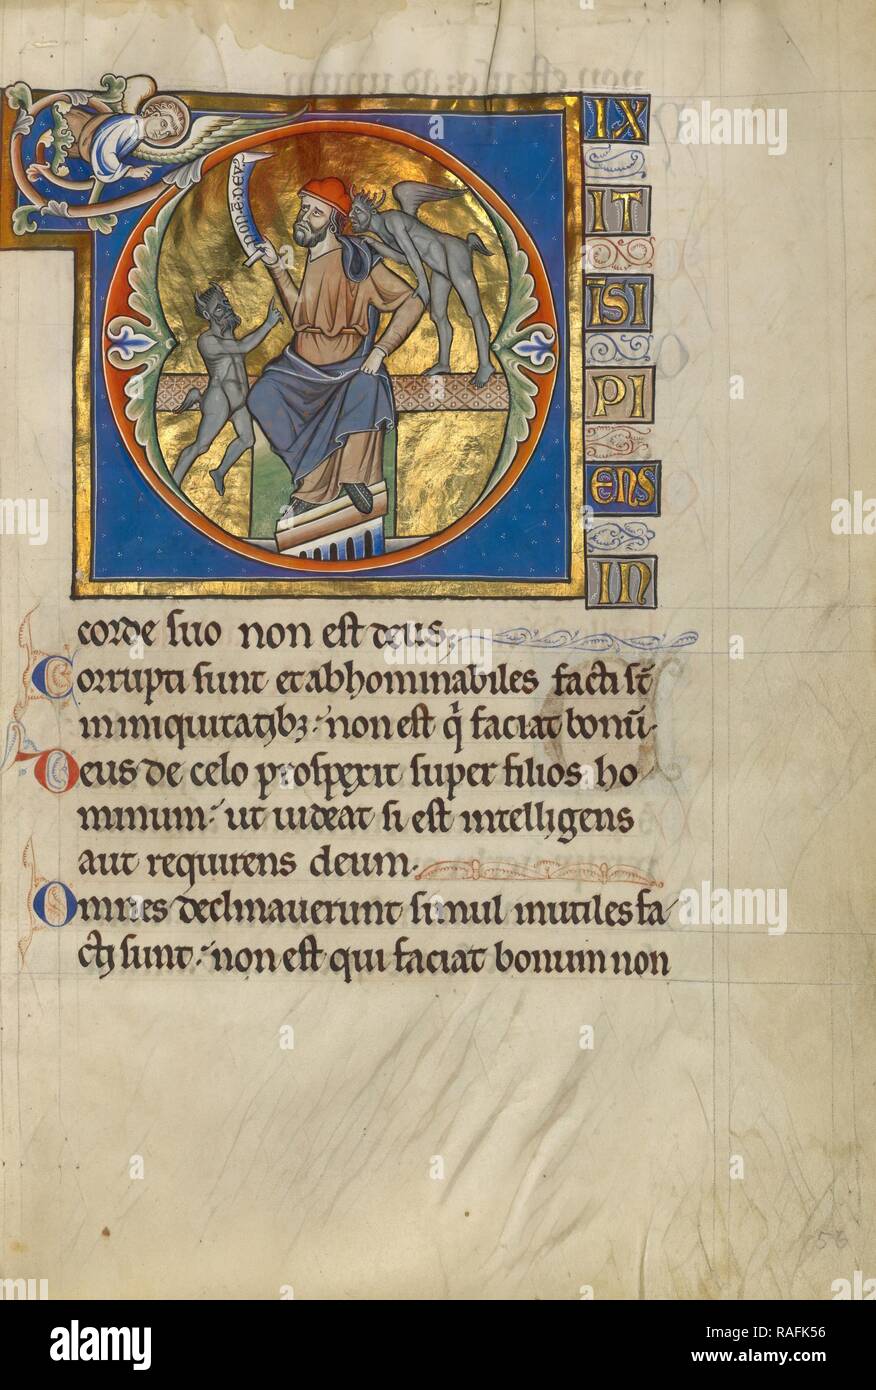 NON·Ē·DEV·
IX
IT
ĪSI
PI
ENS
IN
corde suo non est deus.
Corrupti sunt et abhominabiles facti st̄
in iniquitatibꝫ: non est q̇ faciat bonū.
Deus de celo prospexit super filios ho
minum: ut uideat si est intelligens
aut requirens deum.
Omnes declinauerunt simul inutiles fa
cti sunt: non est qui faciat bonum non
56
alamy stock photo
alamy
Image ID: RAFK56
www.alamy.com